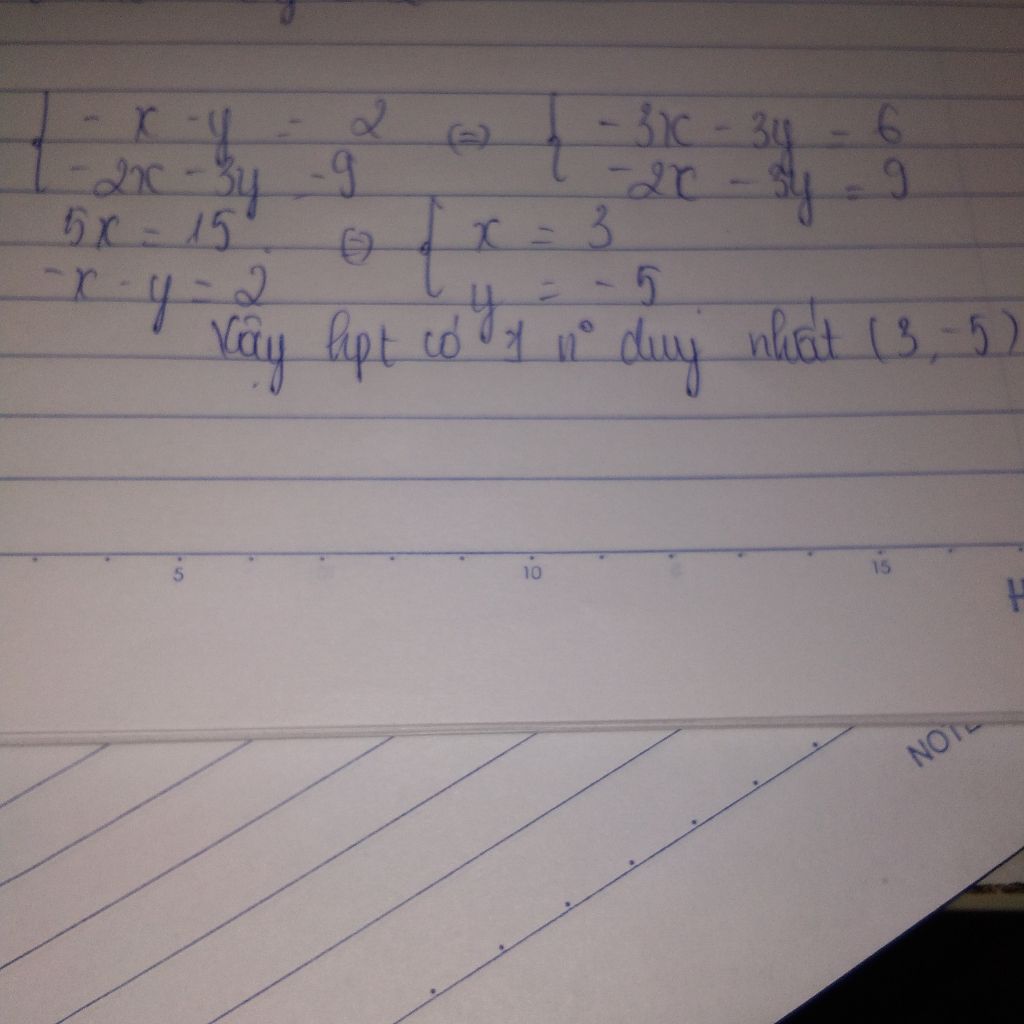 - x - y = 2 (=) { -3x - 3y = 6
-2x - 3y = 9 -2x - 3y = 9
5x = 15 (=) { x = 3
-x - y = 2 y = -5
Vậy hpt có 1 n° duy nhất (3, -5)
5 10 15
H
NOTE